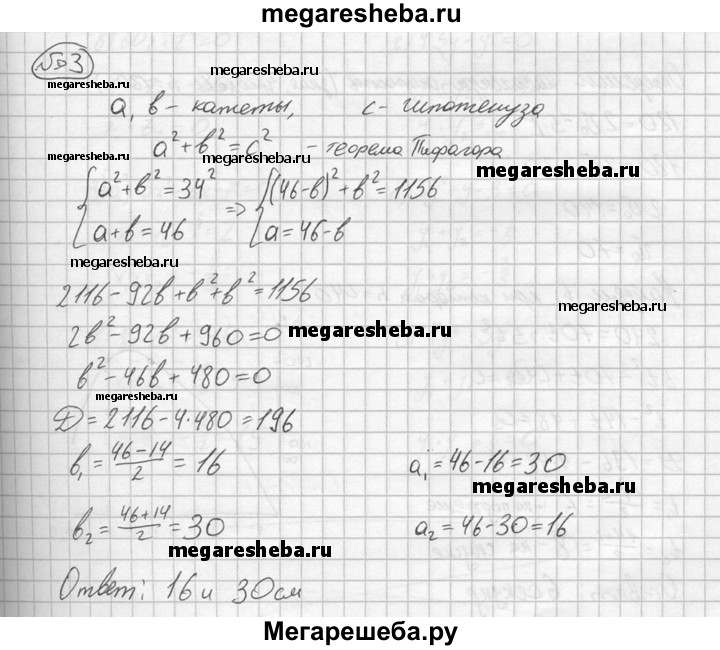 megaresheba.ru
№3
megaresheba.ru
megaresheba.ru
a, b - катеты, c - гипотенуза
a² + b² = c² - теорема Пифагора
megaresheba.ru
megaresheba.ru
{ a² + b² = 34² => { (46-b)² + b² = 1156
a + b = 46 a = 46 - b
megaresheba.ru
2116 - 92b + b² + b² = 1156
megaresheba.ru
2b² - 92b + 960 = 0
megaresheba.ru
b² - 46b + 480 = 0
megaresheba.ru
D = 2116 - 4·480 = 196
b₁ = (46-14)/2 = 16 a₁ = 46 - 16 = 30
megaresheba.ru
b₂ = (46+14)/2 = 30 a₂ = 46 - 30 = 16
megaresheba.ru
Ответ: 16 и 30 см
Мегарешеба.ру